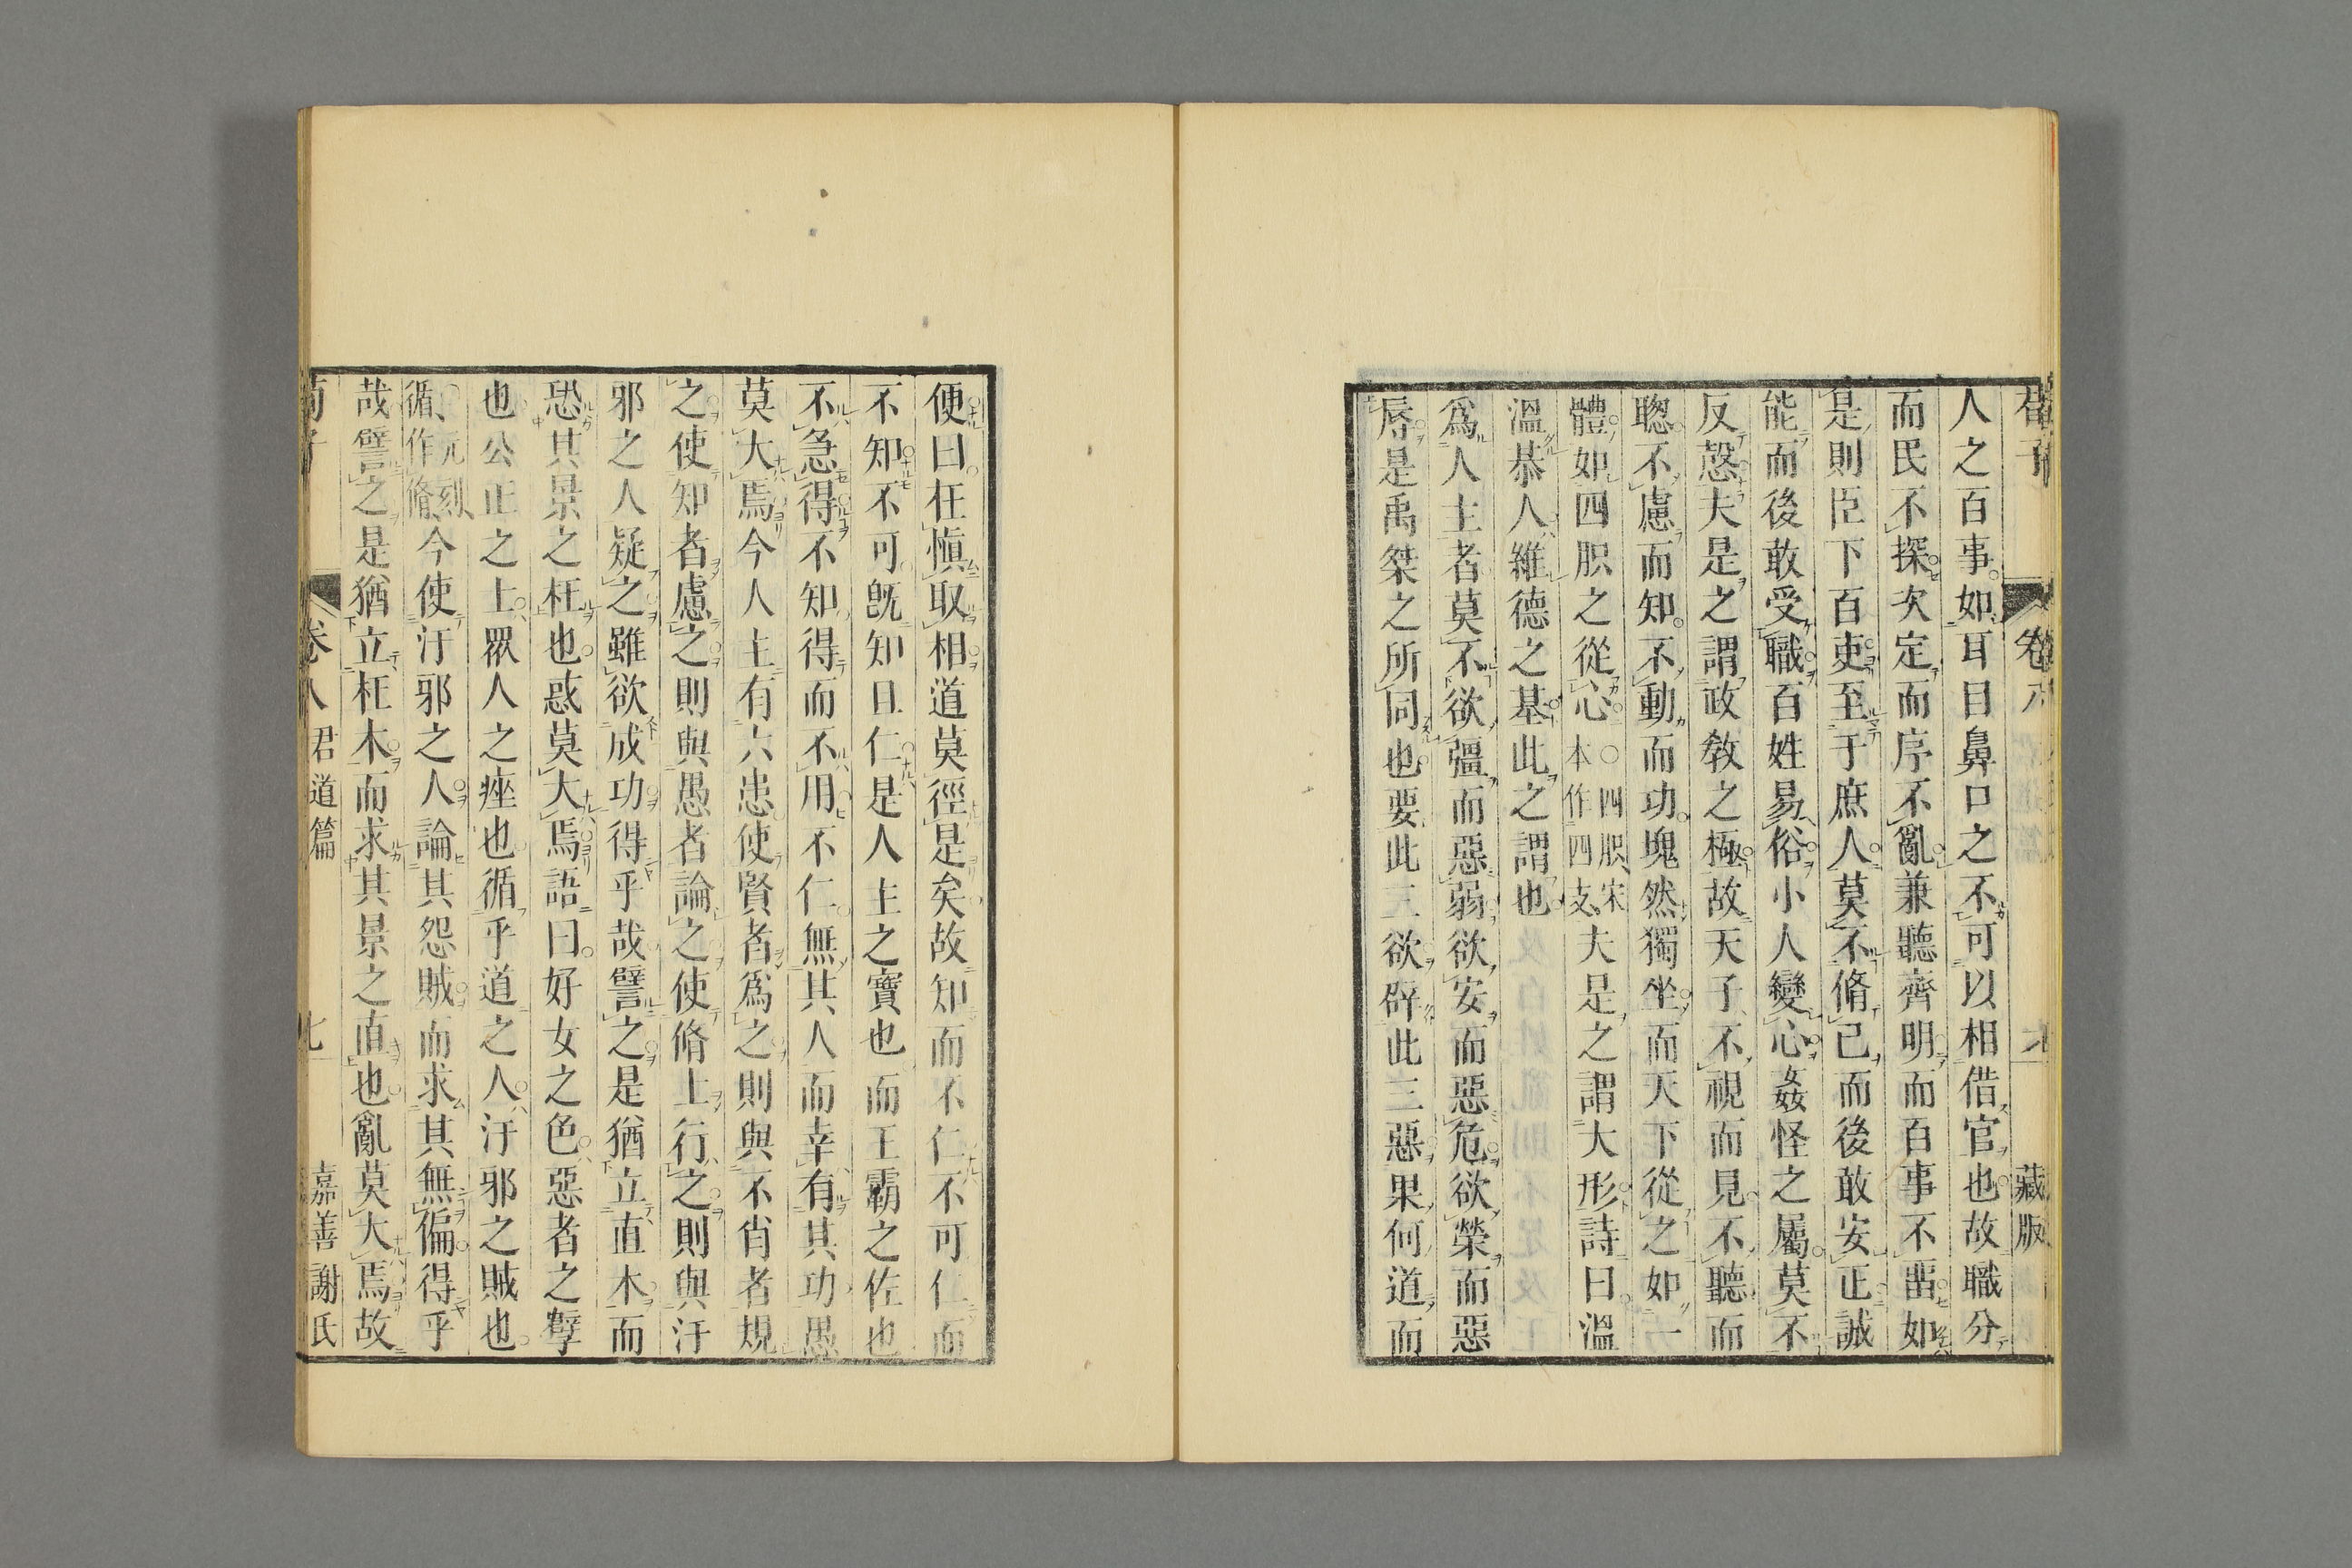 荀子 卷八 藏版
人之百事如耳目鼻口之不可以相借官也故職分
而民不探次定而序不亂兼聽齊明而百事不畱如
是則臣下百吏至于庶人莫不脩己而後敢安正誠
能而後敢受職百姓易俗小人變心姦怪之屬莫不
反愨夫是之謂政敎之極故天子不視而見不聽而
聰不慮而知不動而功塊然獨坐而天下從之如一
體如四胑之從心○四胑宋本作四支夫是之謂大形詩曰溫
溫恭人維德之基此之謂也
爲人主者莫不欲彊而惡弱欲安而惡危欲榮而惡
辱是禹桀之所同也要此三欲辟此三惡果何道而
便曰在愼取相道莫徑是矣故知而不仁不可仁而
不知不可旣知且仁是人主之寶也而王霸之佐也
不急得不知得而不用不仁無其人而幸有其功愚
莫大焉今人主有六患使賢者爲之則與不肖者規
之使知者慮之則與愚者論之使脩士行之則與汙
邪之人疑之雖欲成功得乎哉譬之是猶立直木而
恐其景之枉也惑莫大焉語曰好女之色惡者之孽
也公正之士眾人之痤也循乎道之人汙邪之賊也
○元刻循作脩今使汙邪之人論其怨賊而求其無偏得乎
哉譬之是猶立枉木而求其景之直也亂莫大焉故
荀子 卷八 君道篇 七 嘉善謝氏